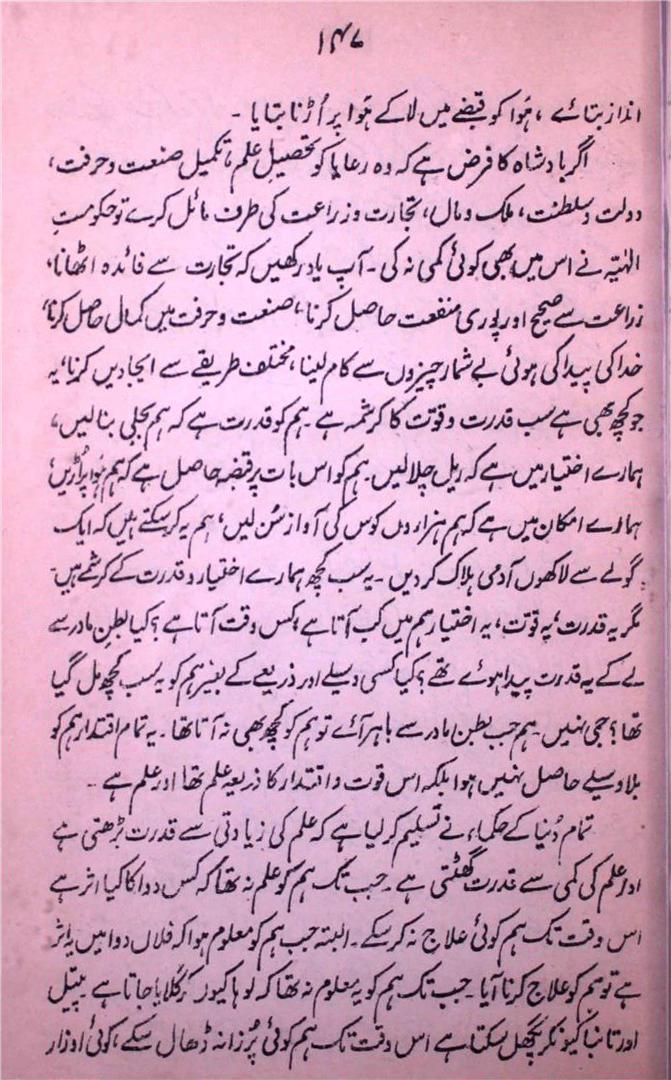 ۱۴۷
انداز بتائے ، ہَوا کو قبضے میں لا کے ہَوا پر اُڑنا بتایا ۔
اگر بادشاہ کا فرض ہے کہ وہ رعایا کو تحصیلِ علم، تکمیل صنعت و حرفت،
دولت و سلطنت، ملک و مال، تجارت و زراعت کی طرف مائل کرے تو حکومتِ
الٰہیّہ نے اس میں بھی کوئی کمی نہ کی ۔ آپ یاد رکھیں کہ تجارت سے فائدہ اٹھانا،
زراعت سے صحیح اور پوری منفعت حاصل کرنا، صنعت و حرفت میں کمال حاصل کرنا،
خدا کی پیدا کی ہوئی بے شمار چیزوں سے کام لینا، مختلف طریقے سے ایجادیں کرنا، یہ
جو کچھ بھی ہے سب قدرت و قوّت کا کرشمہ ہے ۔ ہم کو قدرت ہے کہ ہم بجلی بنا لیں،
ہمارے اختیار میں ہے کہ ریل چلا لیں۔ ہم کو اس بات پر قبضہ حاصل ہے کہ ہم ہَوا پر اُڑیں،
ہمارے امکان میں ہے کہ ہم ہزاروں کوس کی آواز سُن لیں، ہم یہ کر سکتے ہیں کہ ایک
گولے سے لاکھوں آدمی ہلاک کر دیں ۔ یہ سب کچھ ہمارے اختیار و قدرت کے کرشمے ہیں۔
مگر یہ قدرت، یہ قوّت، یہ اختیار ہم میں کب آتا ہے، کس وقت آتا ہے ؟ کیا بطنِ مادر سے
لے کے یہ قدرت پیدا ہوئے تھے ؟ کیا کسی وسیلے اور ذریعے کے بغیر ہم کو یہ سب کچھ مل گیا
تھا ؟ جی نہیں۔ ہم جب بطنِ مادر سے باہر آئے تو ہم کو کچھ بھی نہ آتا تھا ۔ یہ تمام اقتدار ہم کو
بلا وسیلے حاصل نہیں ہوا بلکہ اس قوت و اقتدار کا ذریعہ علم تھا اور علم ہے ۔
تمام دُنیا کے حکماء نے تسلیم کر لیا ہے کہ علم کی زیادتی سے قدرت بڑھتی ہے
اور علم کی کمی سے قدرت گھٹتی ہے ۔ جب تک ہم کو علم نہ تھا کہ کس دوا کا کیا اثر ہے
اس وقت تک ہم کوئی علاج نہ کر سکے ۔ البتہ جب ہم کو معلوم ہوا کہ فلاں دوا میں یہ اثر
ہے تو ہم کو علاج کرنا آیا ۔ جب تک ہم کو یہ معلوم نہ تھا کہ لوہا کیوں کر گلایا جاتا ہے ۔ پیتل
اور تانبا کیونکر پگھل سکتا ہے اس وقت تک ہم کوئی پُرزا نہ ڈھال سکے، کوئی اوزار